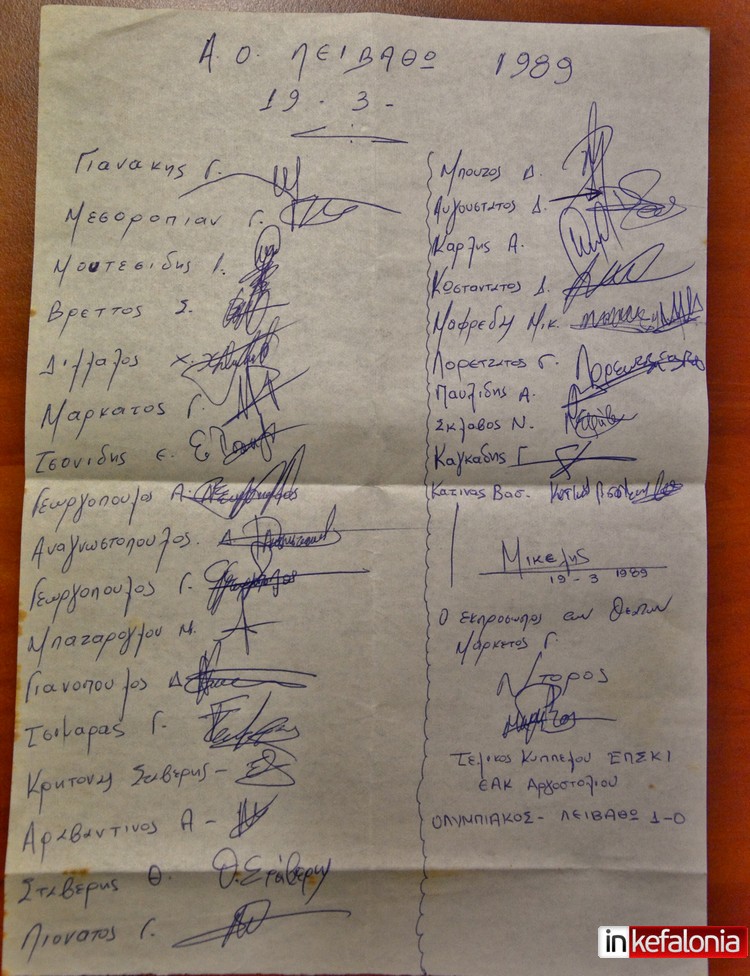 Α. Ο. ΛΕΙΒΑΘΩ 1989
19 - 3 -
Γιανακης Γ.
Μεσοροπιαν Γ.
Μουτεσιδης Ι.
Βρεττος Σ.
Διλλαλος Χ.
Μαρκατος Γ.
Τσονιδης Ε.
Γεωργοπουλος Α.
Αναγνωστοπουλος. Δ
Γεωργοπουλος Γ.
Μπαζαρογλου Μ.
Γιανοπουλος Δ
Τσιμαρας Γ.
Κρητονας Σταβερης -
Αραβαντινος Α -
Σταβερης Θ. Θ. Σταβερης
Λιονατος Γ.
Μπουζος Δ.
Αυγουστατος Δ.
Καρλης Α.
Κωσταντατος Δ.
Μαφρεδας Μικ.
Λορετζατος Γ.
Παυλιδης Α.
Σκλαβος Ν.
Καγκαδης Γ
Κατινας Βασ.
Μικελης
19 - 3 1989
Ο εκπροσωπος των Θεατων
Μαρκετος Γ.
Ντορος
Τελικος Κυπελου ΕΠΣΚΙ
ΕΑΚ Αργοστολιου
ΟΛΥΜΠΙΑΚΟΣ - ΛΕΙΒΑΘΩ 1-0
inkefalonia